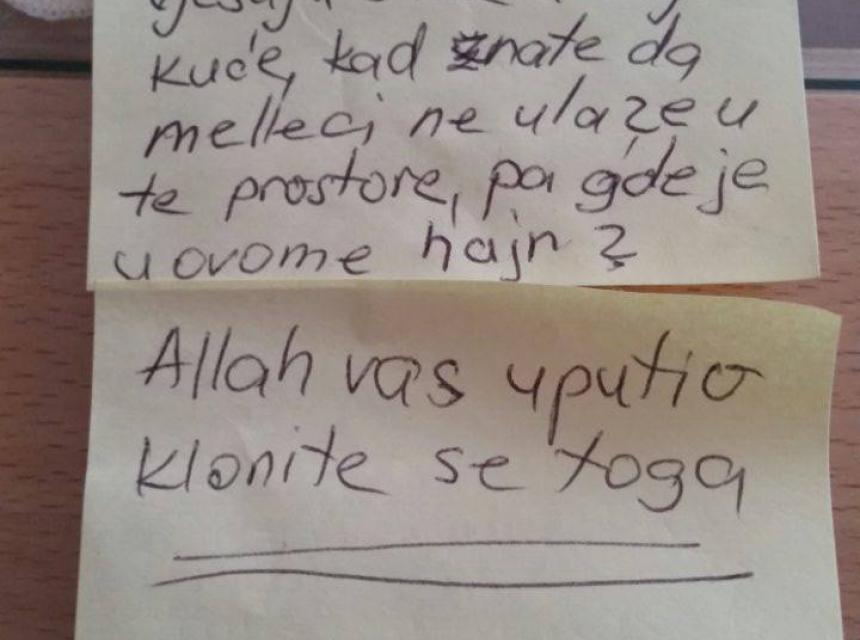 kuće, kad znate da
melleci ne ulaze u
te prostore, pa gde je
u ovome hajr?
Allah vas uputio
klonite se toga